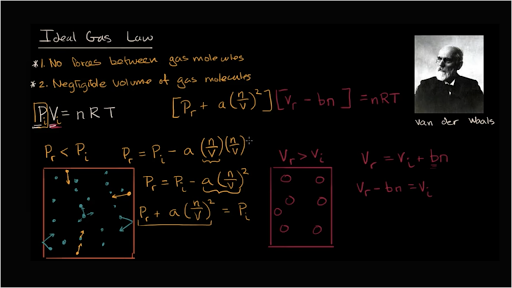 Ideal Gas Law
*1. No forces between gas molecules
*2. Negligible volume of gas molecules
PᵢVᵢ = nRT
[Pᵣ + a(n/V)²][Vᵣ - bn] = nRT
van der Waals
Pᵣ < Pᵢ
Pᵣ = Pᵢ - a(n/V)(n/V)
Pᵣ = Pᵢ - a(n/V)²
Pᵣ + a(n/V)² = Pᵢ
Vᵣ > Vᵢ
Vᵣ = Vᵢ + bn
Vᵣ - bn = Vᵢ